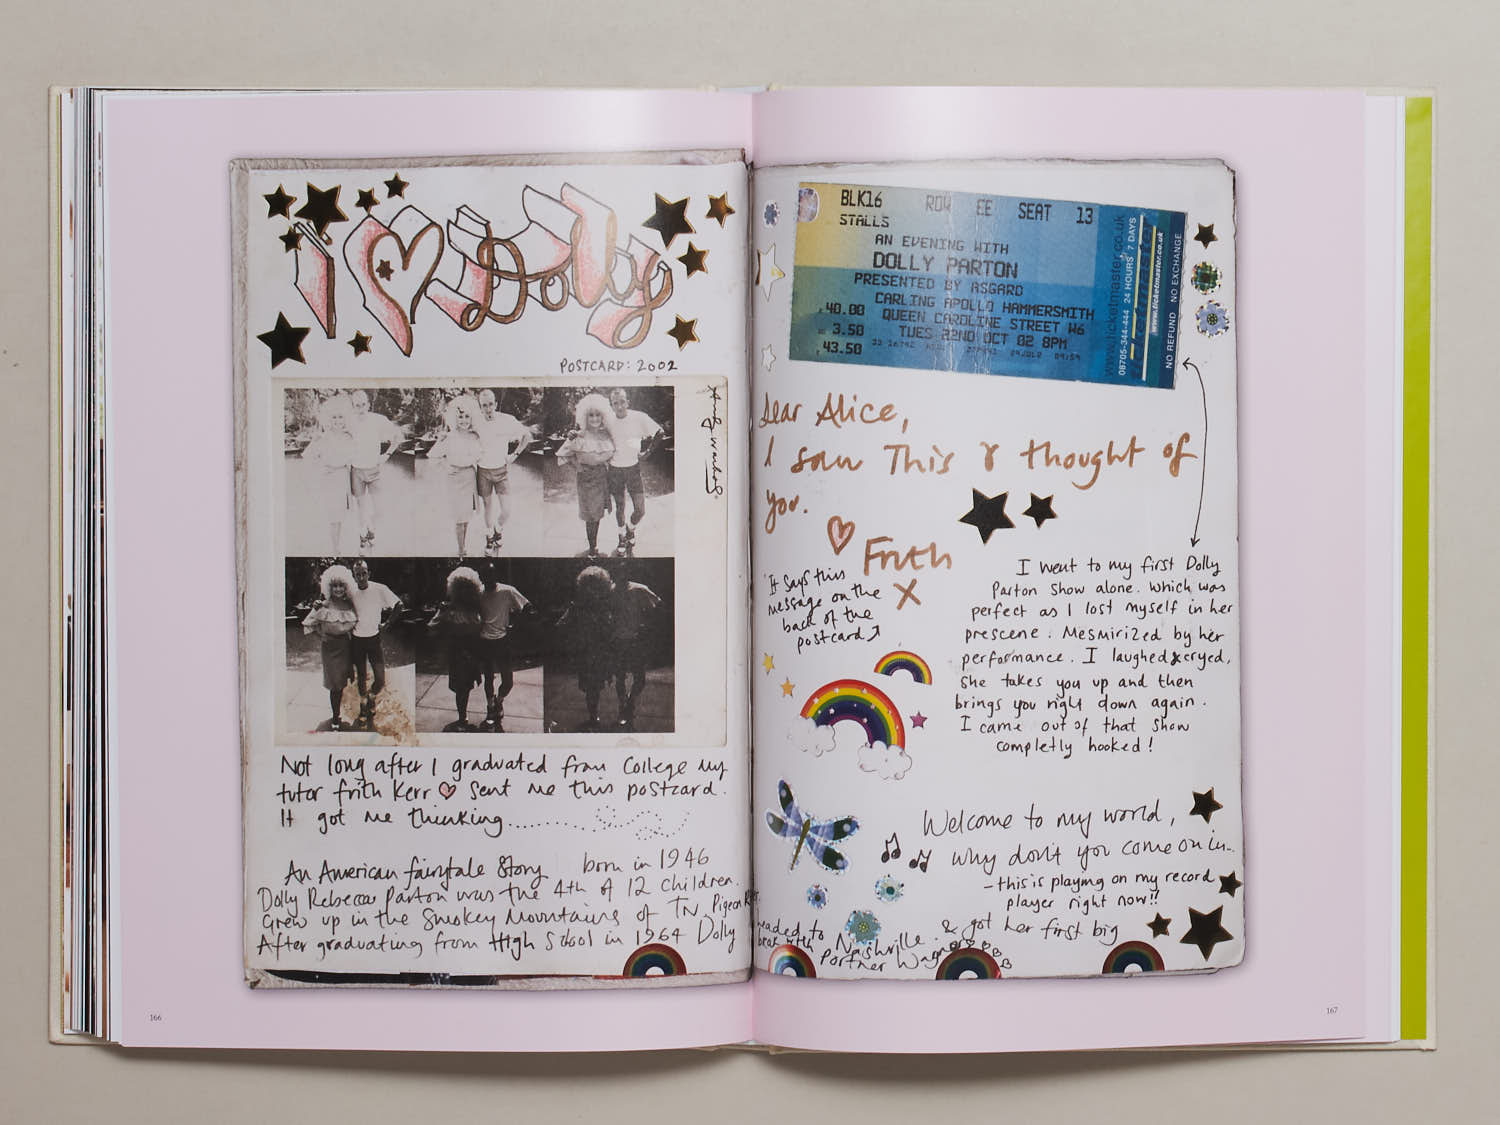 I ♡ Dolly
POSTCARD: 2002
Andy Warhol
Not long after I graduated from College my
tutor frith Kerr ♡ sent me this postcard.
It got me thinking..........
An American fairytale Story born in 1946
Dolly Rebecca Parton was the 4th of 12 children.
Grew up in the Smokey Mountains of TN, Pigeon
After graduating from High School in 1964 Dolly
166
BLK16 ROW EE SEAT 13
STALLS
AN EVENING WITH
DOLLY PARTON
PRESENTED BY ASGARD
40.00 CARLING APOLLO HAMMERSMITH
3.50 QUEEN CAROLINE STREET W6
43.50 TUES 22ND OCT 02 8PM
www.ticketmaster.co.uk
08705-344-444 24 HOURS 7 DAYS
www.ticketmaster.co.uk
NO REFUND NO EXCHANGE
Dear Alice,
I saw This & thought of
you.
♡ Frith
X
It says this
message on the
back of the
postcard
I went to my first Dolly
Parton Show alone. Which was
perfect as I lost myself in her
prescene. Mesmirized by her
performance. I laughed & cryed,
She takes you up and then
brings you right down again.
I came out of that show
completly hooked!
Welcome to my world,
why don't you come on in...
- this is playing on my record
player right now!!
headed to Nashville & got her first big
break with Portner Wagner
167